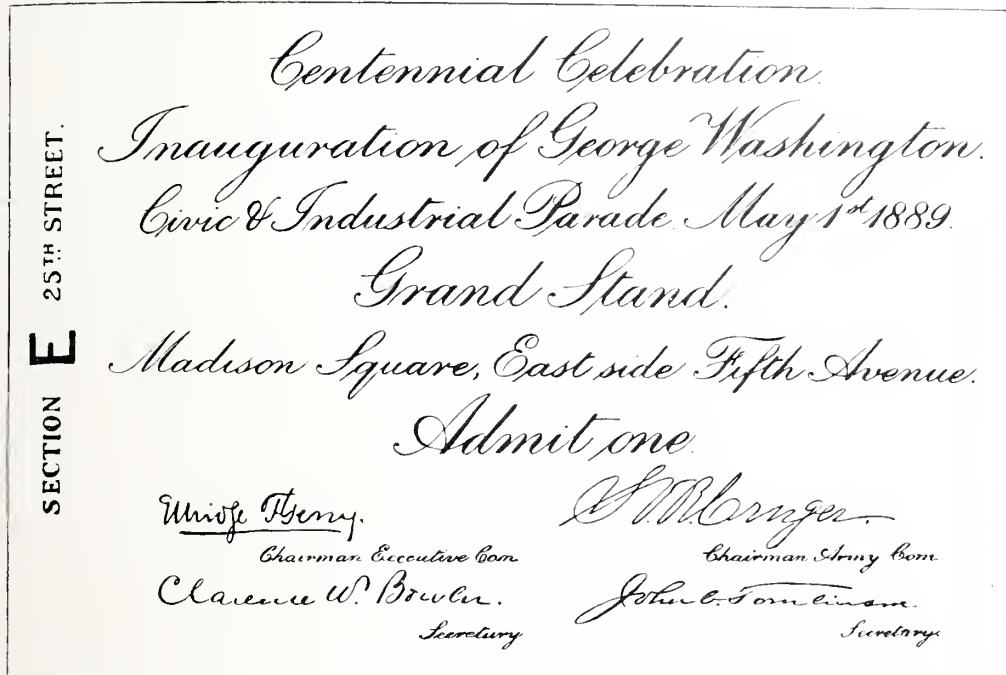 SECTION E 25TH STREET.
Centennial Celebration.
Inauguration of George Washington.
Civic & Industrial Parade. May 1st 1889.
Grand Stand.
Madison Square, East side Fifth Avenue.
Admit one.
Elbridge T. Gerry.
Chairman Executive Com
S. V. R. Cruger.
Chairman Army Com
Clarence W. Bowen.
Secretary
John C. Tomlinson.
Secretary